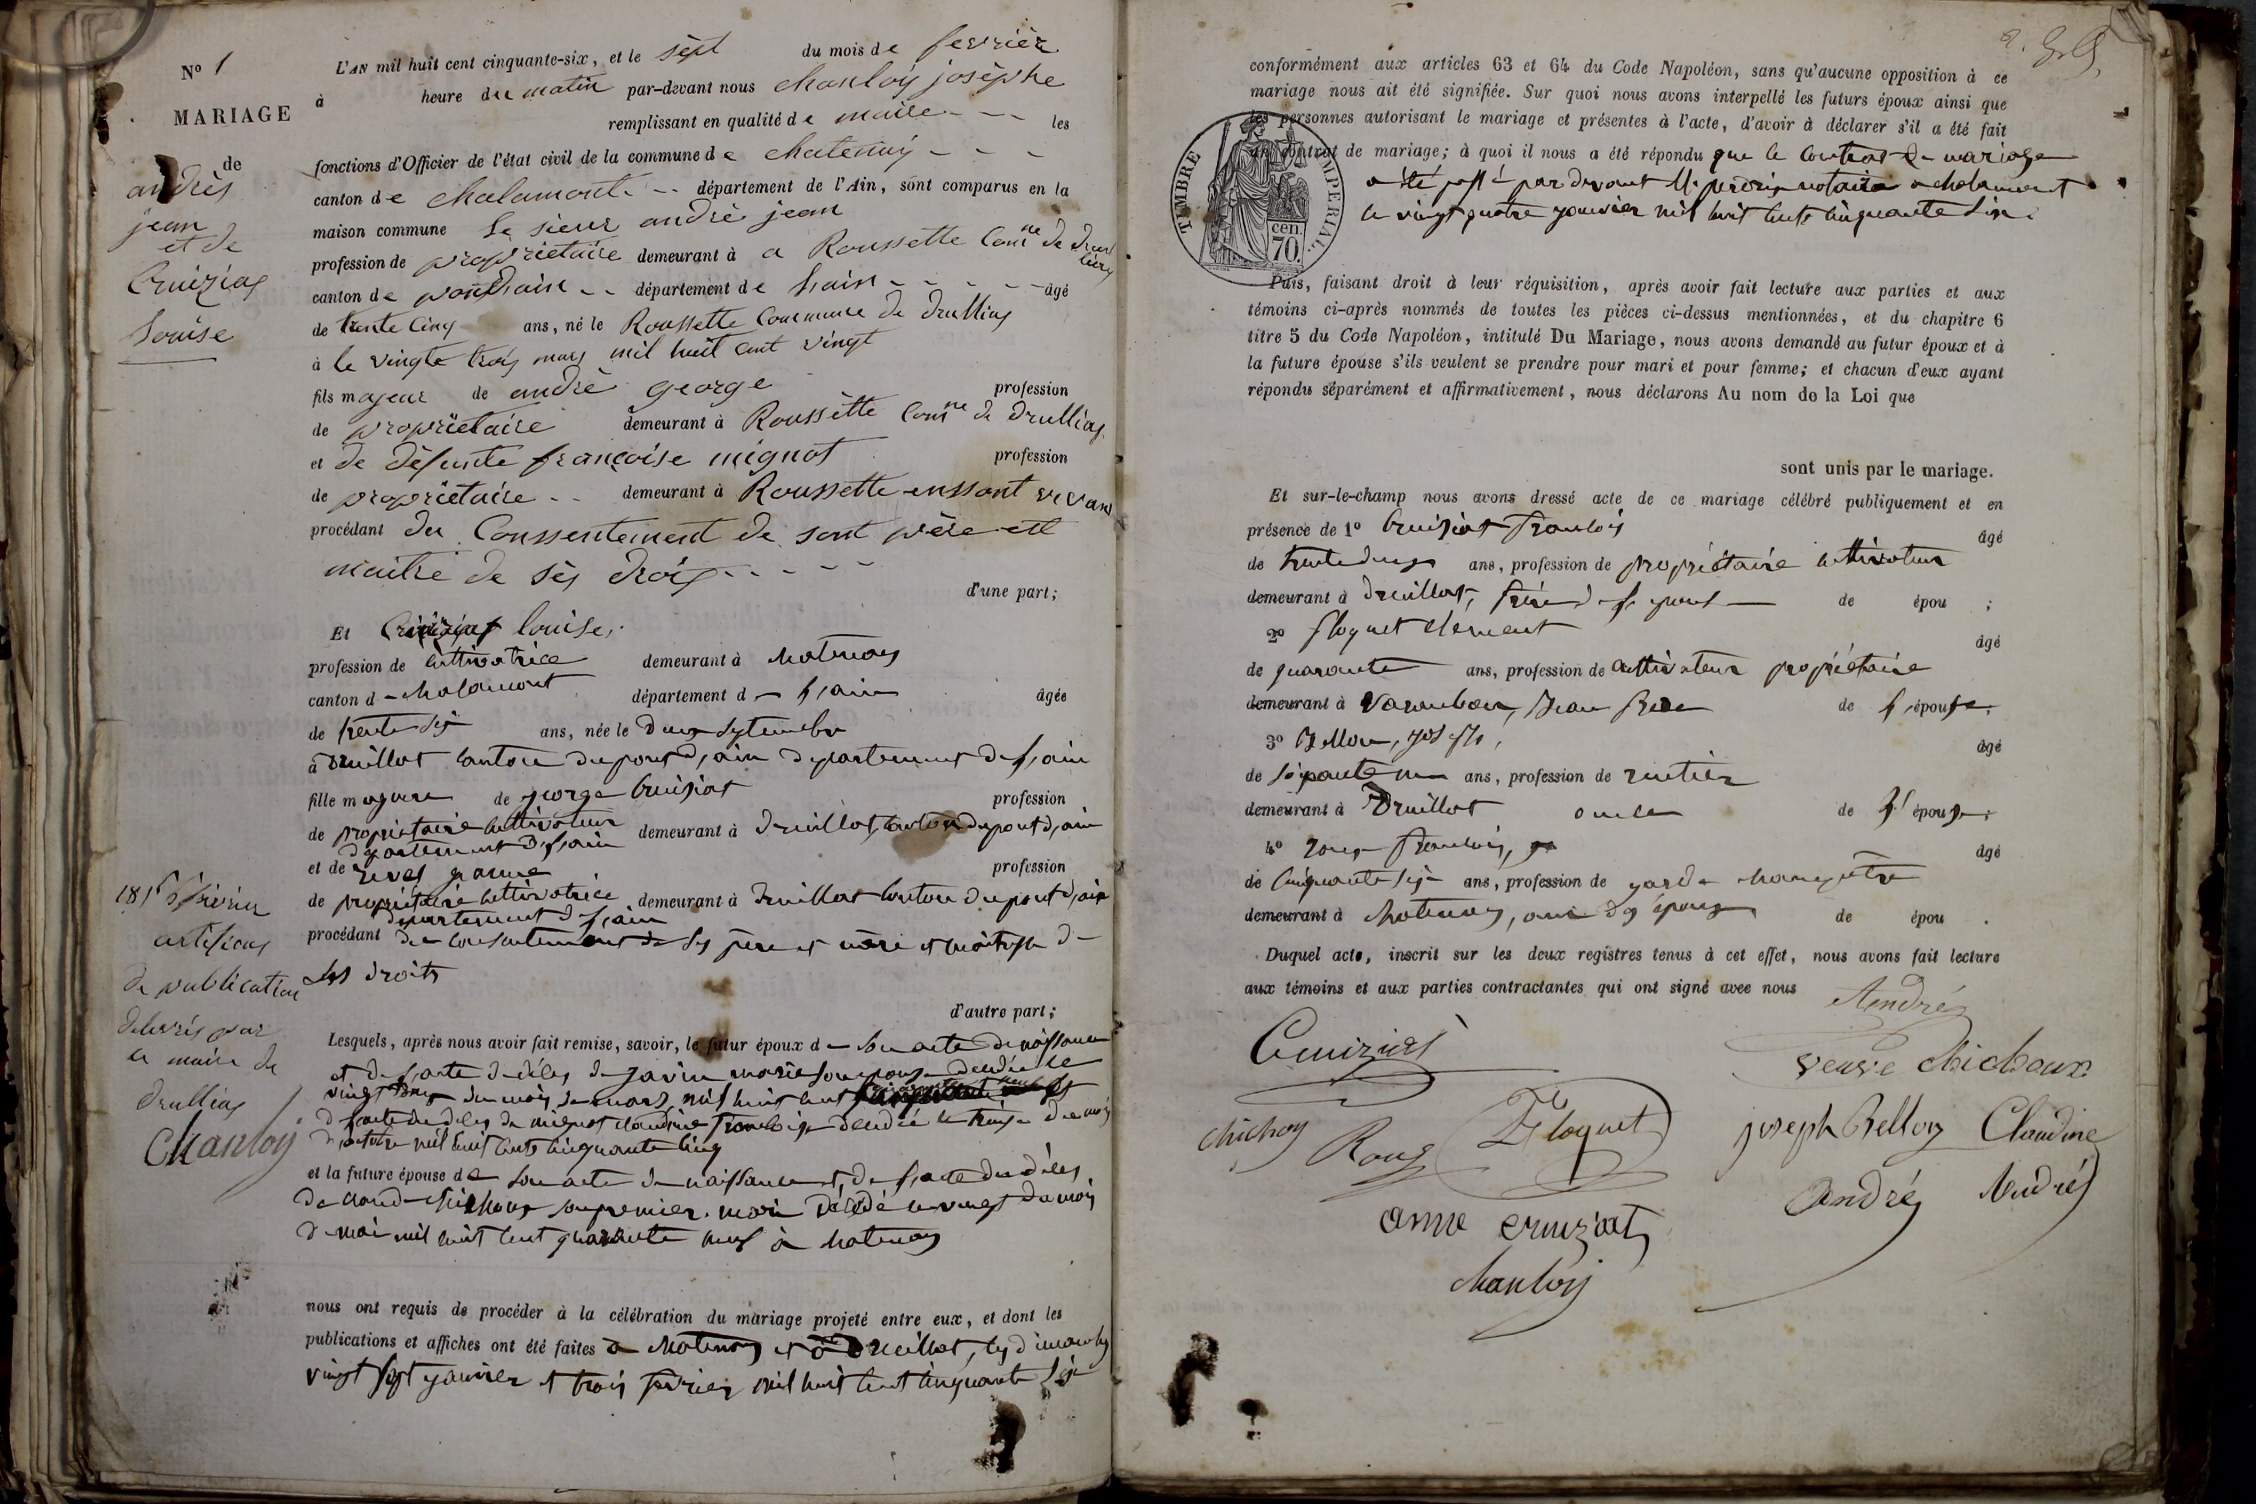 N° 1
MARIAGE
de
andrès
jean
et de
Cruiziaz
Louise
L'AN mil huit cent cinquante-six, et le sèpt du mois de fevrièr
à heure du matin par-devant nous chanloÿ josèphe
remplissant en qualité de maire - - - les
fonctions d'Officier de l'état civil de la commune de chatenaÿ - - -
canton de chalamont - - département de l'Ain, sont comparus en la
maison commune Le sieur andrè jean
profession de propriètaire demeurant à a Roussette Comne de Druil
liery
canton de pondhain - - département de hain - - - - - âgé
de trente cinq ans, né le Roussette Commune de drullias
à le vingte trois mars mil huit cent vingt
fils majeur de andrè george profession
de propriètaire demeurant à Roussètte Comne de drullias
et de dèfunte françoise mignot profession
de propriètaire - - demeurant à Roussette enssont vivant
procédant du Conssentement de sont père ett
maitre de sès droiz - - - - -
d'une part;
Et Cruiziat louise,
profession de cultivatrice demeurant à chatenay
canton d e chalamont département d e l'ain âgée
de trente six ans, née le deux septembre
à Druillat canton du pont d'ain departement de l'ain
fille majeure de george Cruisiat profession
de propriètaire cultivateur demeurant à druillat, canton du pont d'ain
département de l'ain
et de rives jeanne profession
de propriétaire cultivatrice demeurant à druillat canton du pont d'ain
département de l'ain
procédant du consentement de ses père et mère et maitresse de
ses droits
d'autre part;
181 fevrier
artificas
de publication
delivrés par
le maire de
drullias
Chanloÿ
Lesquels, après nous avoir fait remise, savoir, le futur époux d e son acte de naissance
et de l'acte de décès de javin marie son epouse décédée le
vingt deux du mois de mars mil huit cent
de l'acte de décès de mignot claudine françoise décédée le treize du mois
d'octobre mil huit cents cinquante cinq
et la future épouse de son acte de naissance et de l'acte de décès
de claude chichoux son premier mari décédé le vingt du mois
de mai mil huit cent quarante neuf à chatenay
nous ont requis de procéder à la célébration du mariage projeté entre eux, et dont les
publications et affiches ont été faites à chatenay et à Druillat, les dimanches
vingt sept janvier et trois fevrier mil huit cent cinquante six
conformément aux articles 63 et 64 du Code Napoléon, sans qu'aucune opposition à ce
mariage nous ait été signifiée. Sur quoi nous avons interpellé les futurs époux ainsi que
les personnes autorisant le mariage et présentes à l'acte, d'avoir à déclarer s'il a été fait
un contrat de mariage; à quoi il nous a été répondu que le contrat de mariage
a été passé par devant M. notaire a chalamont
le vingt quatre janvier mil huit cents cinquante six.
TIMBRE IMPERIAL.
cen.
70.
Puis, faisant droit à leur réquisition, après avoir fait lecture aux parties et aux
témoins ci-après nommés de toutes les pièces ci-dessus mentionnées, et du chapitre 6
titre 5 du Code Napoléon, intitulé Du Mariage, nous avons demandé au futur époux et à
la future épouse s'ils veulent se prendre pour mari et pour femme; et chacun d'eux ayant
répondu séparément et affirmativement, nous déclarons Au nom de la Loi que
sont unis par le mariage.
Et sur-le-champ nous avons dressé acte de ce mariage célébré publiquement et en
présence de 1° Cruisiat françois âgé
de trente deux ans, profession de propriétaire cultivateur
demeurant à druillat, frère de l'epouse de épou ;
2° floquet clement âgé
de quarante ans, profession de cultivateur propriétaire
demeurant à Varambon, beau frère de l'épouse.
3° Bellon, joseph, âgé
de soixante un ans, profession de rentier
demeurant à Druillat oncle de l'épouse.
4° Roux françois, âgé
de cinquante six ans, profession de garde champêtre
demeurant à chatenay, ami des époux de épou .
Duquel acte, inscrit sur les deux registres tenus à cet effet, nous avons fait lecture
aux témoins et aux parties contractantes qui ont signé avec nous
André
Cruiziat
veuve chichoux
chichoy Roux Floquet joseph Bellon Claudine
andré André
anne cruziat
chanloÿ